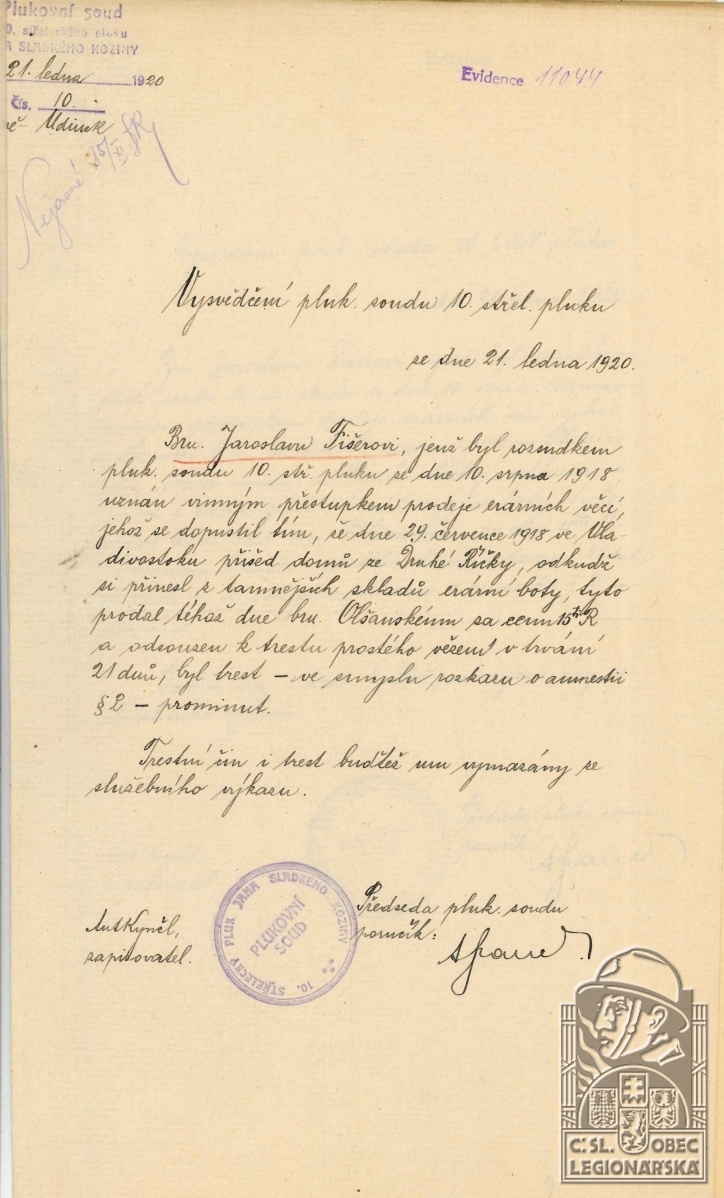 Plukovní soud
0. střeleckého pluku
A SLADKÉHO KOZINY
21. ledna 1920
čís. 10.
Udinsk
Evidence 11044
Nejasné 15/XI
Vysvědčení pluk. soudu 10. střel. pluku
se dne 21. ledna 1920.
Bru. Jaroslavu Fišerovi, jenž byl rozsudkem
pluk. soudu 10. stř. pluku se dne 10. srpna 1918
uznán vinným přestupkem prodeje erárních věcí,
jehož se dopustil tím, že dne 29. července 1918 ve Vla-
divostoku přišed domů ze Druhé Říčky, odkudž
si přinesl z tamnějších skladů erární boty, tyto
prodal téhož dne bru. Olšanskému za cenu 15 R
a odsouzen k trestu prostého vězení v trvání
21 dnů, byl trest – ve smyslu rozkazu o amnestii
§ 2 – prominut.
Trestní čin i trest buďtež mu vymazány ze
služebního výkazu.
Ant Kynčl,
zapisovatel.
10. STŘELECKÝ PLUK JANA SLADKÉHO KOZINY
PLUKOVNÍ
SOUD
Předseda pluk. soudu
poručík:
Č.SL. OBEC
LEGIONÁŘSKÁ